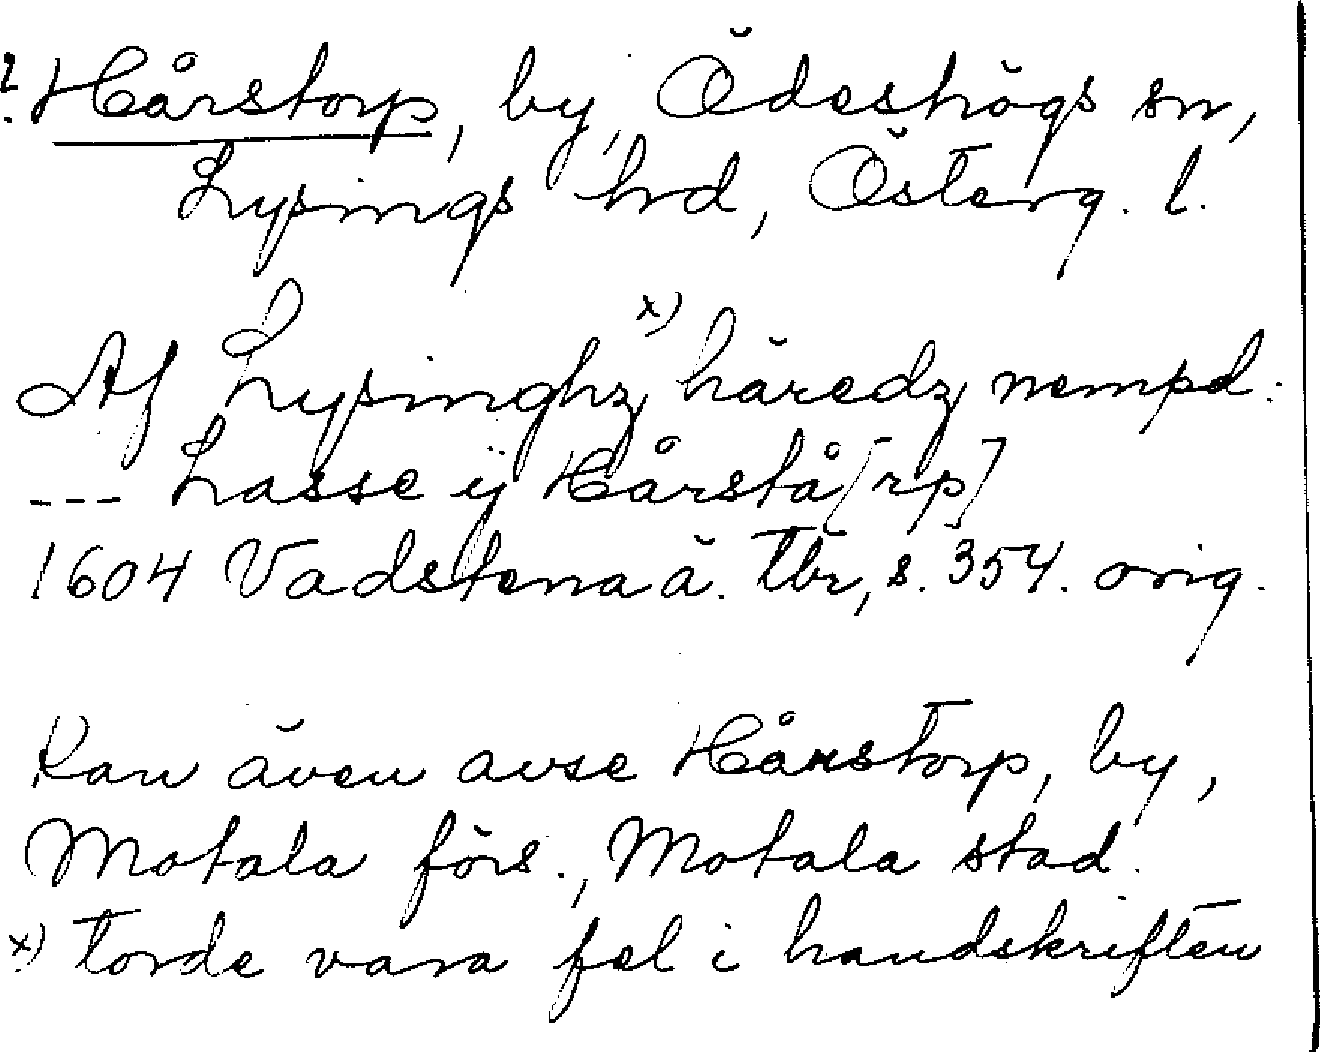 ? Hårstorp, by, Ödeshögs sn,
Lysings hd, Österg. l.
Af Lysinghz x) häredz nempd:
--- Lasse ÿ Hårstå[rp]
1604 Vadstena ä. tbr, s. 354. orig.
Kan även avse Hårstorp, by,
Motala förs., Motala stad.
x) torde vara fel i handskriften